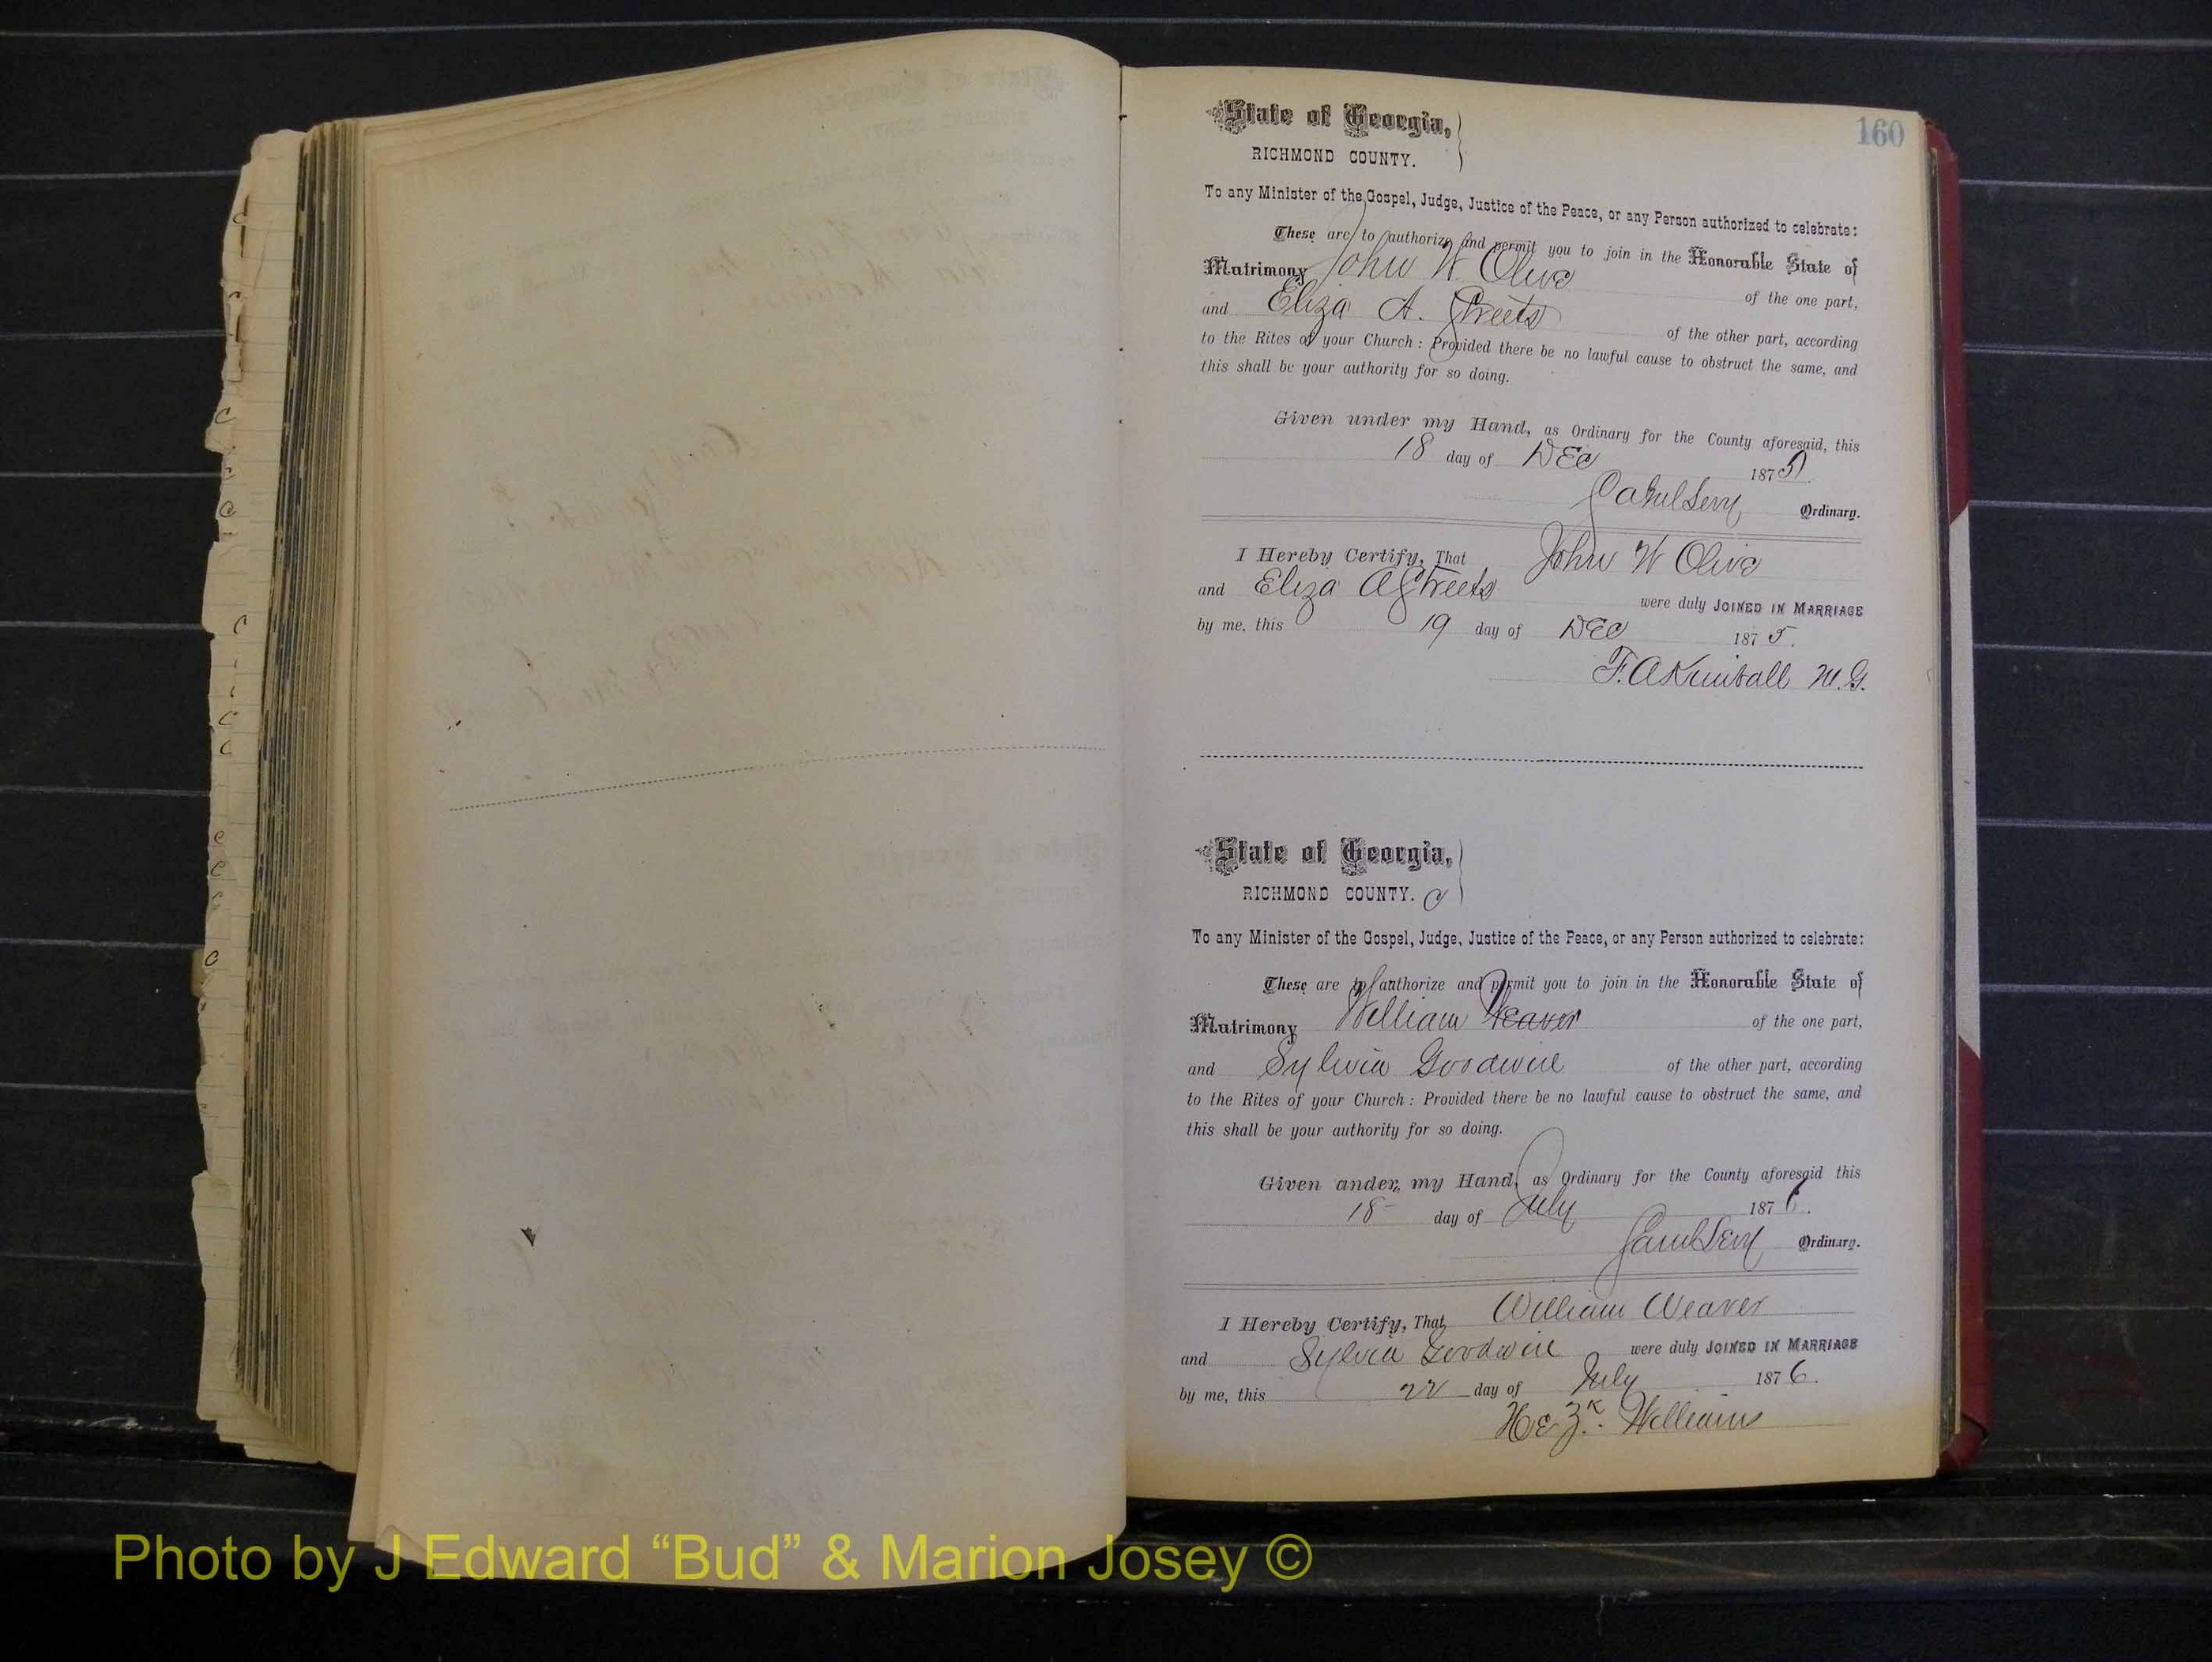 160
State of Georgia,
RICHMOND COUNTY.
To any Minister of the Gospel, Judge, Justice of the Peace, or any Person authorized to celebrate:
These are to authorize and permit you to join in the Honorable State of
Matrimony John W Olive of the one part,
and Eliza A. Streets of the other part, according
to the Rites of your Church: Provided there be no lawful cause to obstruct the same, and
this shall be your authority for so doing.
Given under my Hand, as Ordinary for the County aforesaid, this
18 day of DEC 1875
Saml Levy Ordinary.
I Hereby Certify, That John W Olive
and Eliza A Streets were duly JOINED IN MARRIAGE
by me, this 19 day of DEC 1875.
F. A Kimball M.G.
State of Georgia,
RICHMOND COUNTY. C
To any Minister of the Gospel, Judge, Justice of the Peace, or any Person authorized to celebrate:
These are to authorize and permit you to join in the Honorable State of
Matrimony William Weaver of the one part,
and Sylvia Goodwin of the other part, according
to the Rites of your Church: Provided there be no lawful cause to obstruct the same, and
this shall be your authority for so doing.
Given under my Hand, as Ordinary for the County aforesaid this
18 day of July 1876.
Saml Levy Ordinary.
I Hereby Certify, That William Weaver
and Sylvia Goodwin were duly JOINED IN MARRIAGE
by me, this 22 day of July 1876.
Williams
Photo by J Edward “Bud” & Marion Josey ©